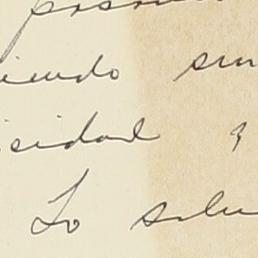 iendo sin
cidad y
Lo salu